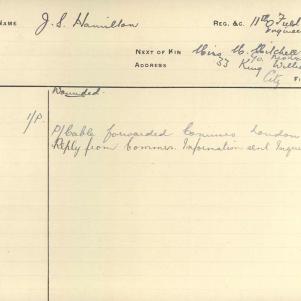 NAME J. S. Hamilton REG. &C. 11th Field
Engineer
NEXT OF KIN Miss M. Mitchell
ADDRESS 33 King Willi
City
Wounded.
1/P. P/Cably forwarded Commrs London
Reply from Commr. Information sent Inqui